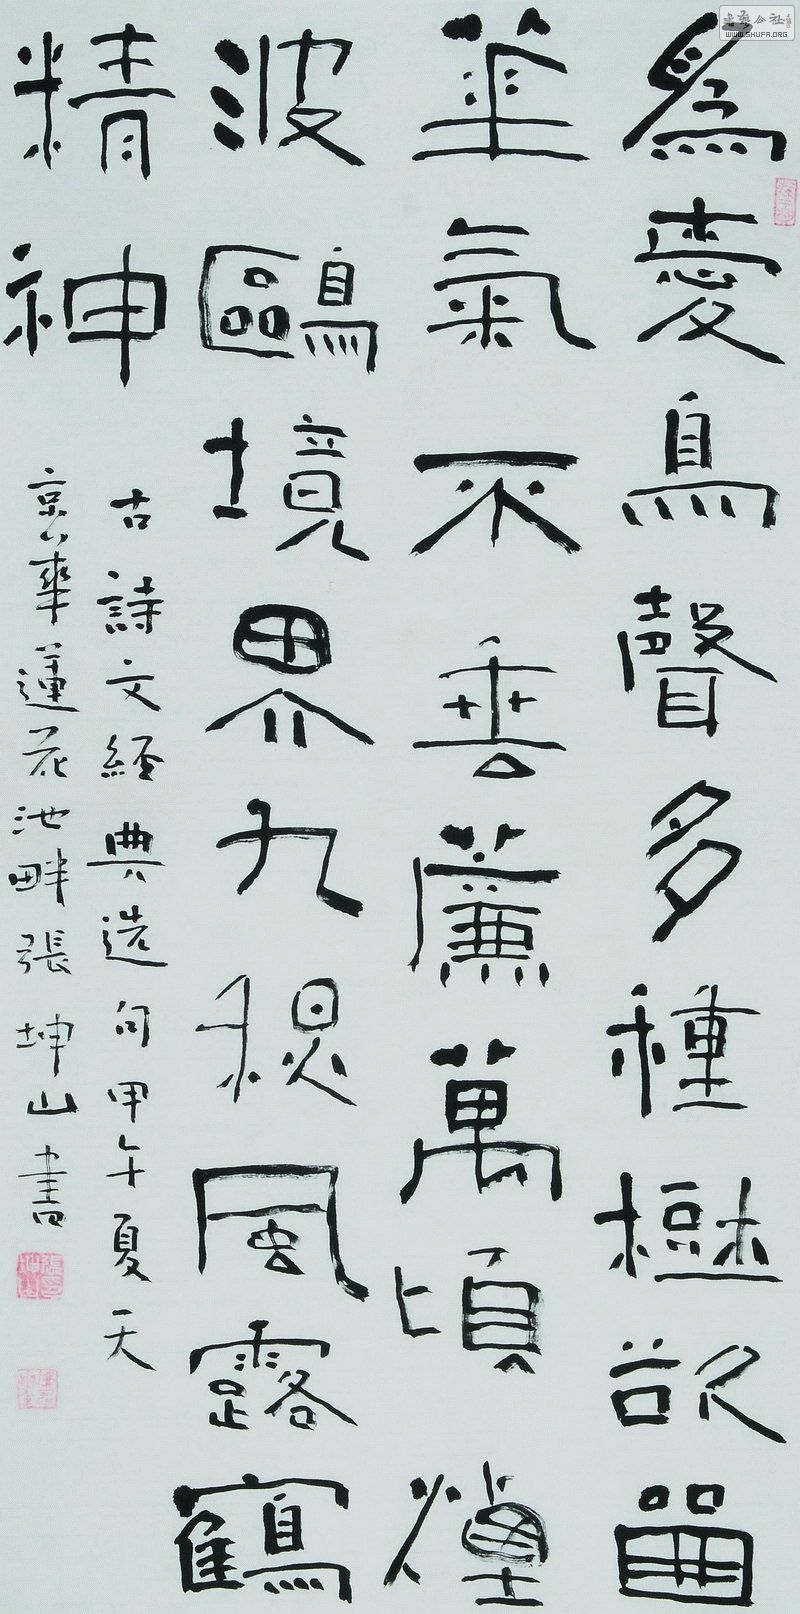 為愛鳥聲多種樹欲留
華氣不垂簾萬頃煙
波鷗境界九秋風露鶴
精神
古詩文經典選句甲午夏天
京華蓮花池畔張坤山書
WWW.SHUFA.ORG